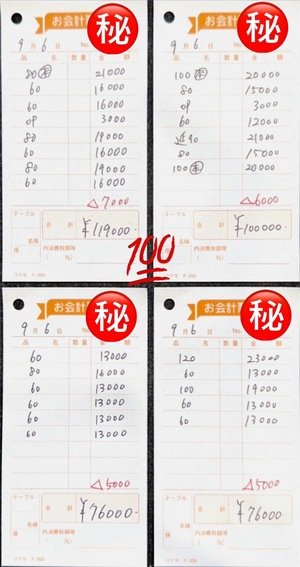 お会計
秘
9月6日 No.
品名 数量 金額
80 本 21000
60 16000
60 16000
OP 3000
80 19000
60 16000
80 19000
60 16000
△7000
テーブル 合計 ¥119000-
名様 内消費税額等
係 ( %)
お会計
秘
9月6日 No.
品名 数量 金額
100 本 20000
80 15000
OP 3000
60 12000
延40 21000
80 15000
100 本 20000
△6000
テーブル 合計 ¥100000-
名様 内消費税額等
係 ( %)
100
お会計
秘
9月6日 No.
品名 数量 金額
60 13000
80 16000
60 13000
60 13000
60 13000
60 13000
△5000
テーブル 合計 ¥76000-
名様 内消費税額等
係 ( %)
お会計
秘
9月6日 No.
品名 数量 金額
120 23000
60 13000
100 19000
60 13000
60 13000
△5000
テーブル 合計 ¥76000-
名様 内消費税額等
係 ( %)